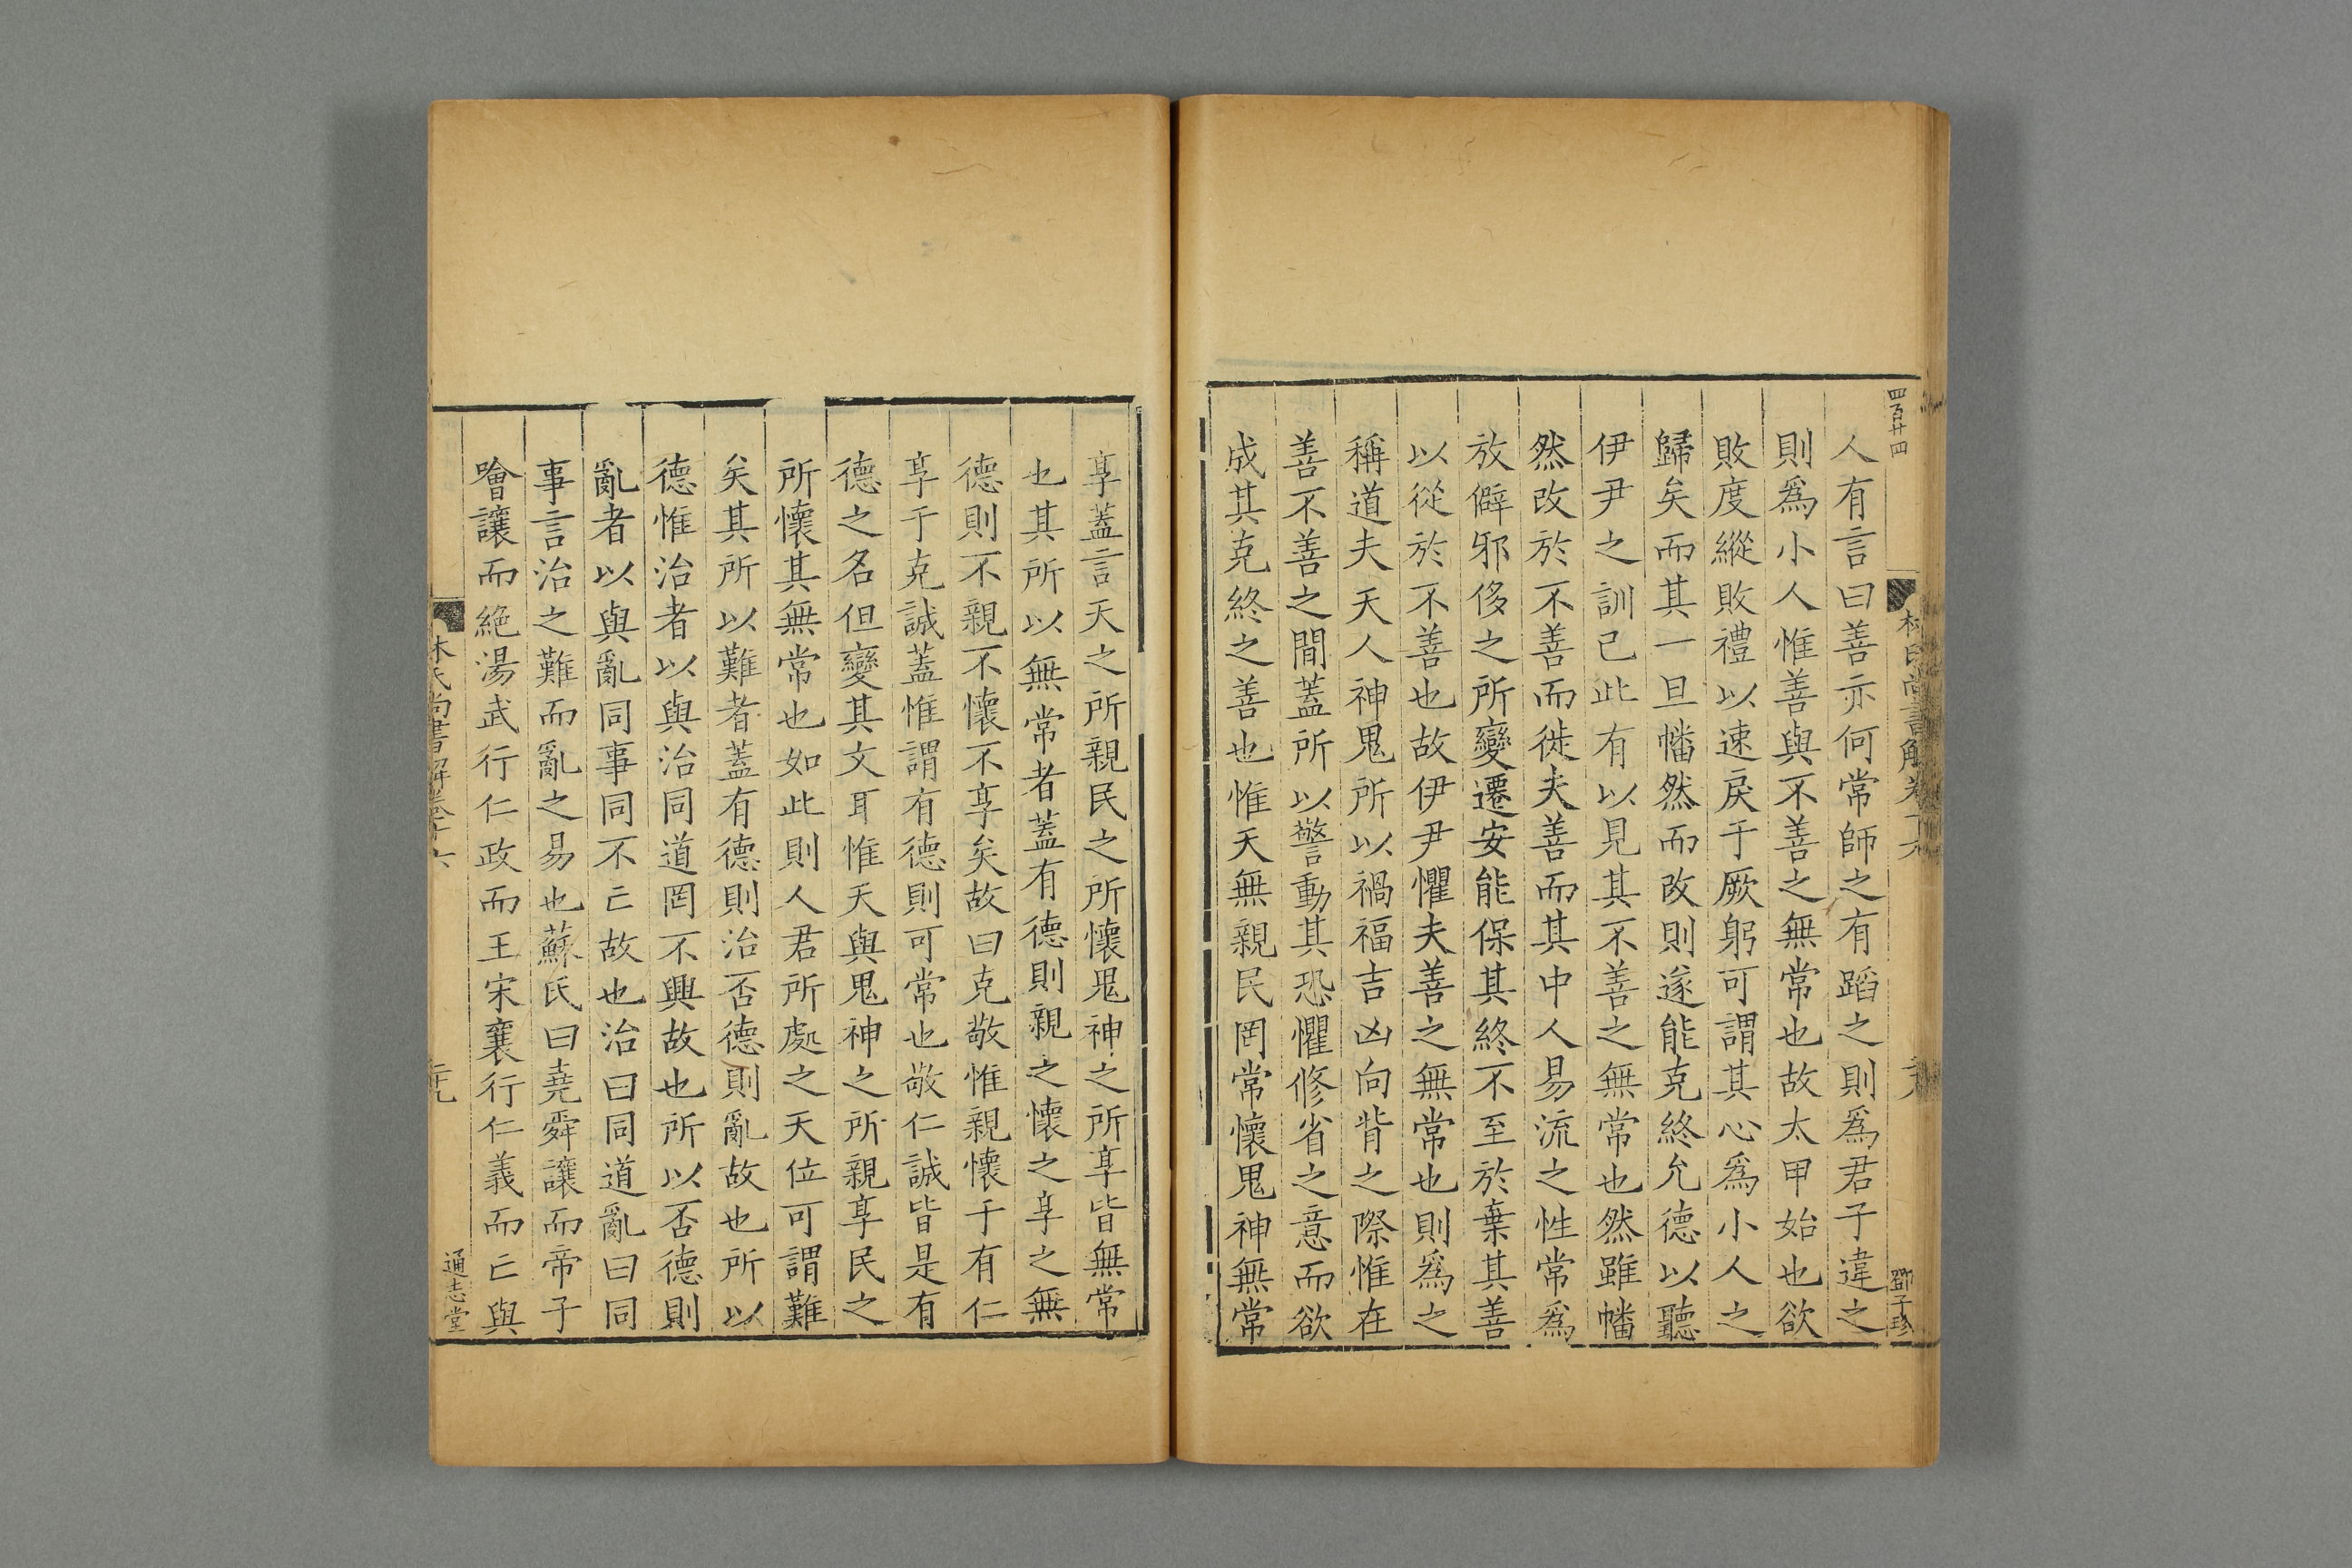 四百廿四
人有言曰善亦何常師之有蹈之則爲君子違之
則爲小人惟善與不善之無常也故太甲始也欲
敗度縱敗禮以速戾于厥躬可謂其心爲小人之
歸矣而其一旦幡然而改則遂能克終允德以聽
伊尹之訓已此有以見其不善之無常也然雖幡
然改於不善而徙夫善而其中人易流之性常爲
放僻邪侈之所變遷安能保其終不至於棄其善
以從於不善也故伊尹懼夫善之無常也則爲之
稱道夫天人神鬼所以禍福吉凶向背之際惟在
善不善之間蓋所以警動其恐懼修省之意而欲
成其克終之善也惟天無親民罔常懷鬼神無常
鄧子珍
享蓋言天之所親民之所懷鬼神之所享皆無常
也其所以無常者蓋有德則親之懷之享之無
德則不親不懷不享矣故曰克敬惟親懷于有仁
享于克誠蓋惟謂有德則可常也敬仁誠皆是有
德之名但變其文耳惟天與鬼神之所親享民之
所懷其無常也如此則人君所處之天位可謂難
矣其所以難者蓋有德則治否德則亂故也所以
德惟治者以與治同道罔不興故也所以否德則
亂者以與亂同事同不亡故也治曰同道亂曰同
事言治之難而亂之易也蘇氏曰堯舜讓而帝子
噲讓而絕湯武行仁政而王宋襄行仁義而亡與
林氏尚書解卷十六
通志堂